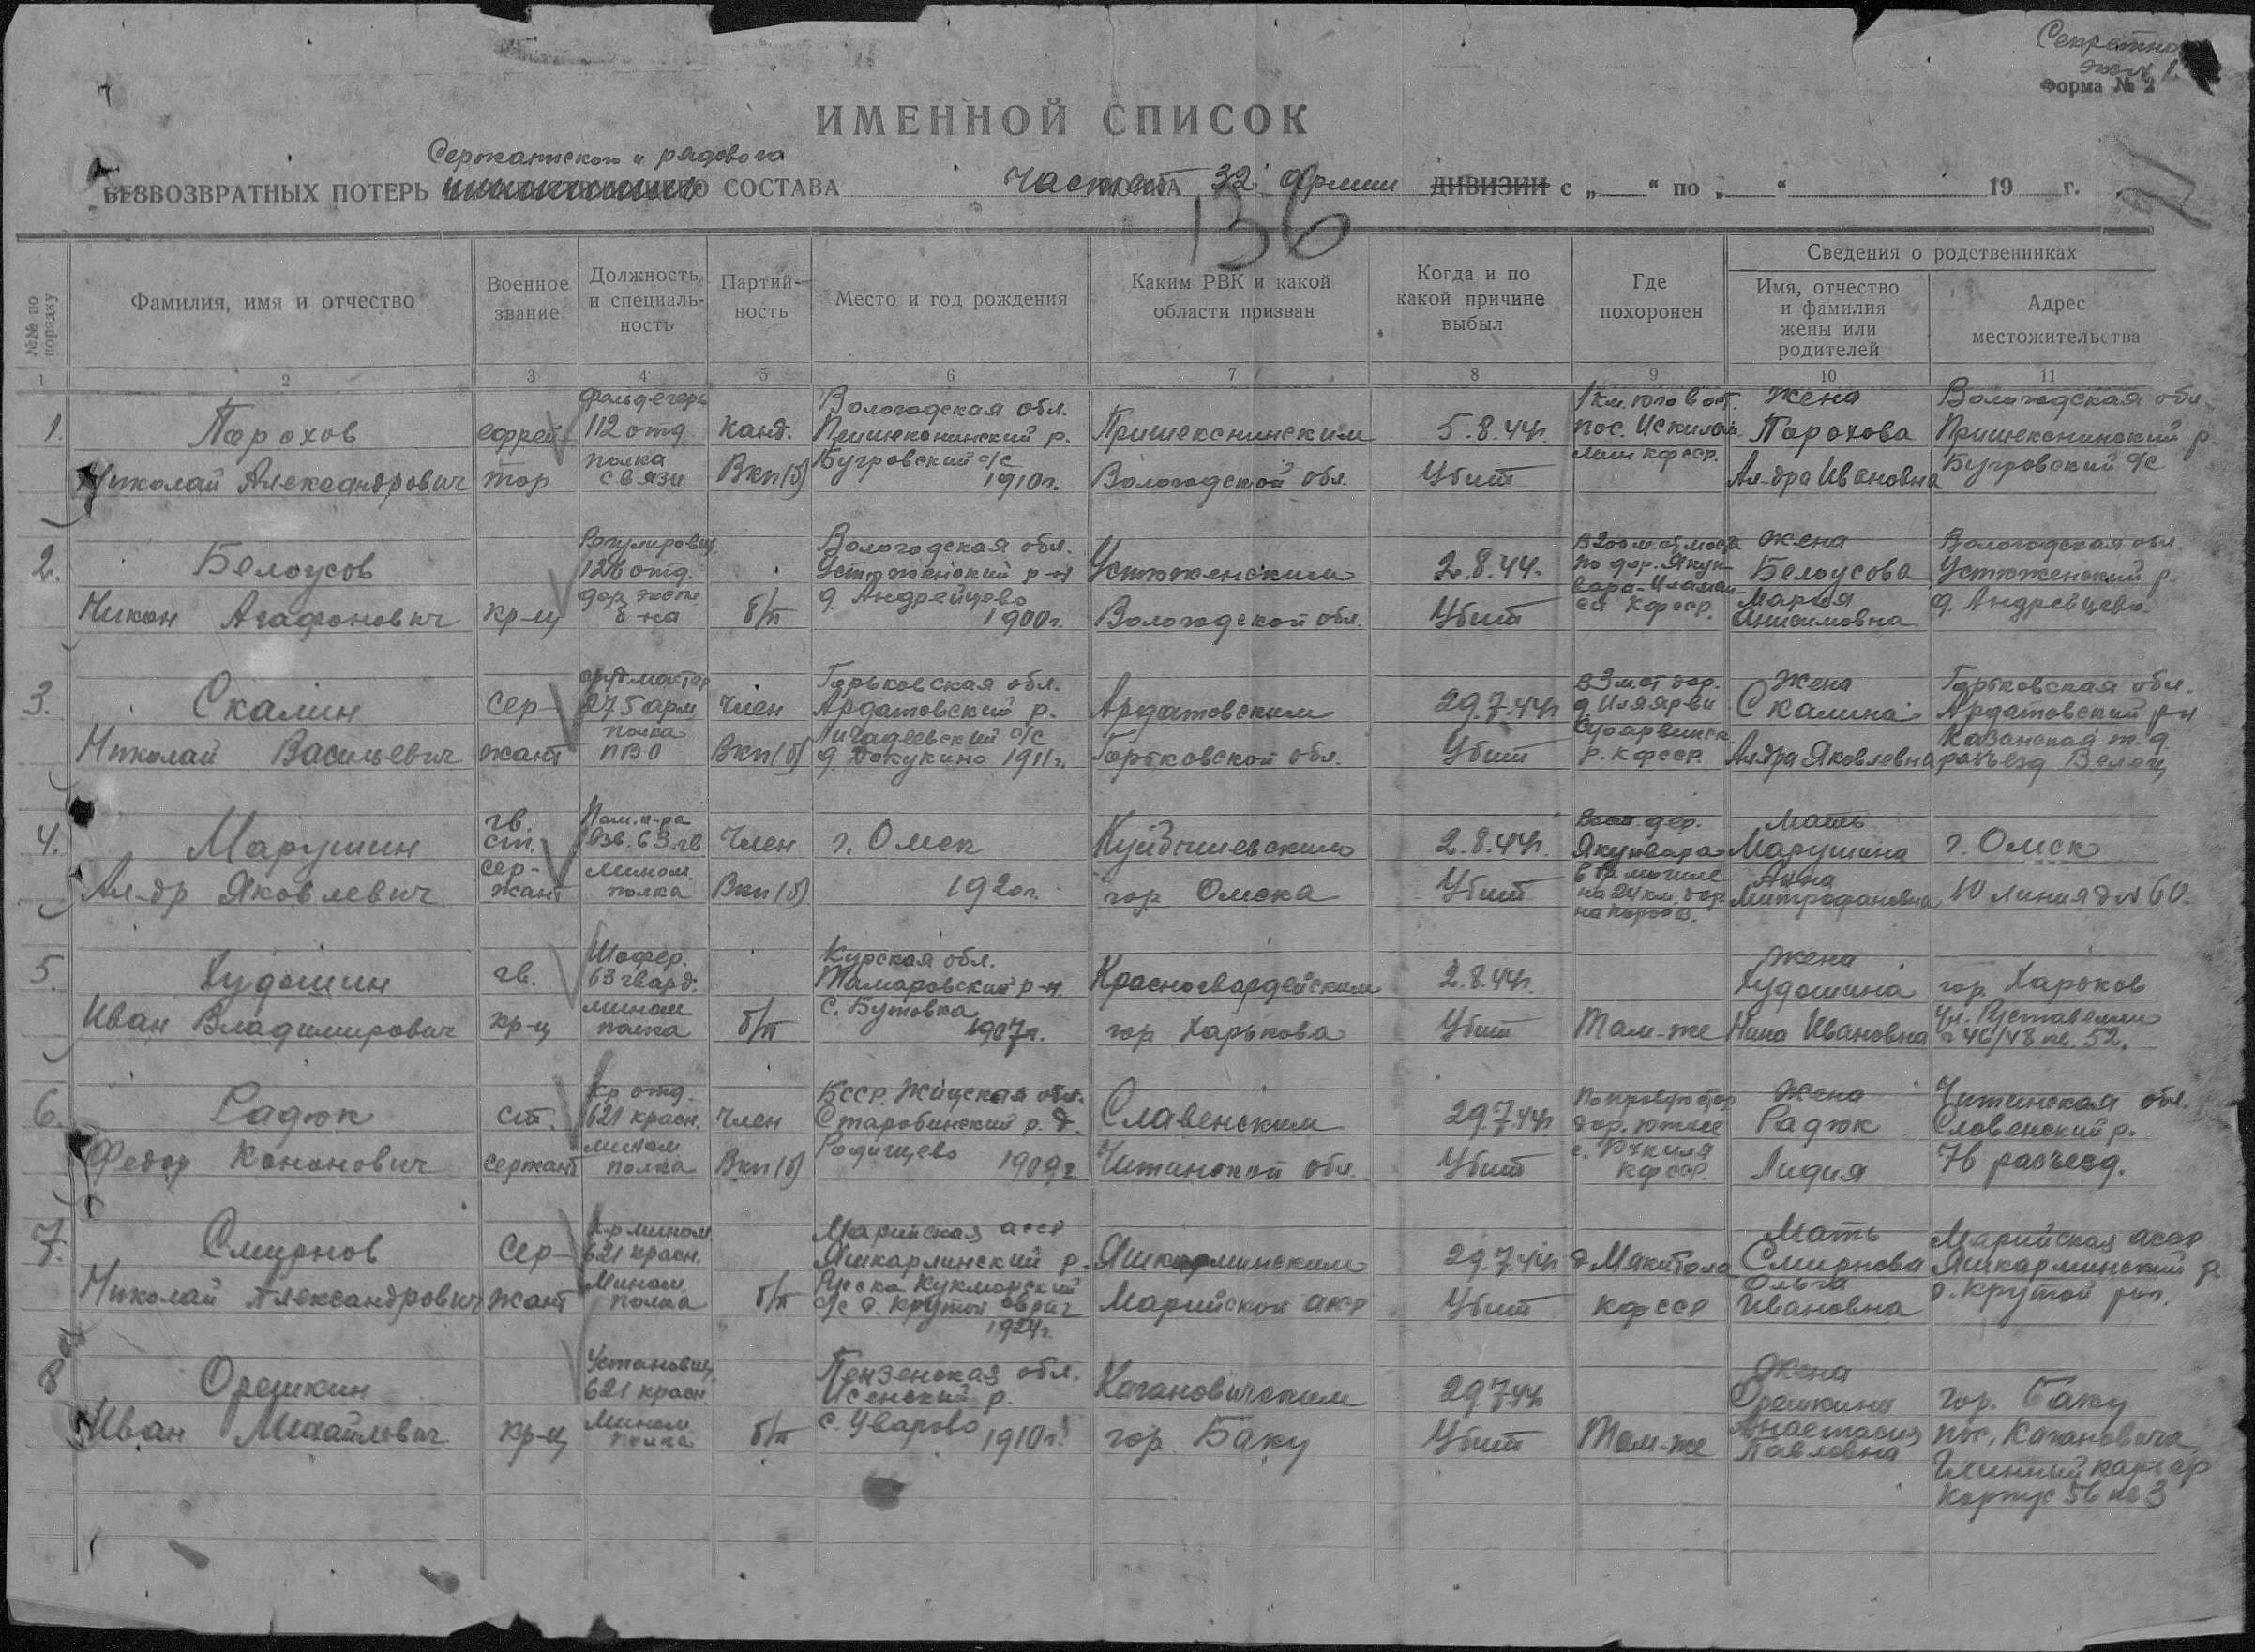 Секретно
экз № 1
Форма № 2
ИМЕННОЙ СПИСОК
Сержантского и рядового
БЕЗВОЗВРАТНЫХ ПОТЕРЬ СОСТАВА частей 32 Армии ДИВИЗИИ с „ “ по „ “ 19 г.
136
№№ по порядку
Фамилия, имя и отчество
Военное звание
Должность и специаль-ность
Партий-ность
Место и год рождения
Каким РВК и какой области призван
Когда и по какой причине выбыл
Где похоронен
Сведения о родственниках
Имя, отчество и фамилия жены или родителей
Адрес местожительства
1 2 3 4 5 6 7 8 9 10 11
1.
Порохов
Николай Александрович
ефрей
тор
фельдегерь
112 отд.
полка
связи
канд.
Вкп(б)
Вологодская обл.
Пришекснинский р.
Бугровский с/с
1910г.
Пришекснинским
Вологодской обл.
5.8.44г.
Убит
1 км. юго вост.
пос.
кфсср.
Жена
Порохова
Ал-дра Ивановна
Вологодская обл.
Пришекснинский р.
Бугровский с/с
2.
Белоусов
Никон Агафонович
кр-ц
Регулировщ.
126 отд.
дор. экспл
б-на
б/п
Вологодская обл.
Устюженский р-н
д. Андрейцево
1900г.
Устюженским
Вологодской обл.
2.8.44.
Убит
В 200 м. от моста
по дор. Якун-
вара-
кфсср.
жена
Белоусова
Мария
Анисимовна
Вологодская обл.
Устюженский р.
д. Андрейцево.
3.
Скалин
Николай Васильевич
Сер-
жант
артмастер
275 арм
полка
ПВО
Член
Вкп(б)
Горьковская обл.
Ардатовский р.
Личадеевский с/с
д. Докукино 1911г.
Ардатовским
Горьковской обл.
29.7.44г
Убит
В 3 м. от дор.
д Иляярви
р. кфсср.
Жена
Скалина
Ал-дра Яковлевна
Горьковская обл.
Ардатовский р-н
Казанская ж.д.
разъезд
4.
Марушин
Ал-др Яковлевич
гв.
ст.
сер-
жант
Пом. к-ра
взв. 63 гв
мином.
полка
Член
Вкп(б)
г. Омск
1920г.
Куйбышевским
гор Омска
2.8.44г.
Убит
дер.
Якунвара
на 24 км. дор
Мать
Марушина
Анна
Митрофановна
г. Омск
10 линия д № 60.
5.
Худошин
Иван Владимирович
гв.
кр-ц
Шофер.
63 гвард.
мином
полка
б/п
Курская обл.
Томаровский р-н.
с. Бутовка
1907г.
Красногвардейским
гор Харькова
2.8.44г.
Убит
Там-же
Жена
Худошина
Нина Ивановна
гор. Харьков
ул. Руставели
46/48 кв. 52.
6.
Радюк
Федор Кононович
ст.
сержант
к-р отд.
621 красн.
мином
полка
Член
Вкп(б)
БССР. Минская обл.
Старобинский р. д.
1909г.
Славенским
Читинской обл.
29.7.44г.
Убит
дор. южнее
кфсср.
Жена
Радюк
Лидия
Читинская обл.
Словенский р.
76 разъезд.
7.
Смирнов
Николай Александрович
Сер-
жант
к-р мином
621 красн.
мином
полка
б/п
Марийская асср
Яшкарлинский р.
Русско Кукморский
с/с д. Крутой овраг
1924г.
Яшкарлинским
Марийской асср
29.7.44г
Убит
д
кфсср
Мать
Смирнова
Ольга
Ивановна
Марийская асср
Яшкарлинский р.
д. Крутой
8
Орешкин
Иван Михайлович
кр-ц
Установщ.
621 красн
мином
полка
б/п
Пензенская обл.
Иссенский р.
с. Уварово
1910г.
Кагановическим
гор Баку
29.7.44г
Убит
Там-же
Жена
Орешкина
Анастасия
Павловна
гор. Баку
пос. Кагановича
карьер
Корпус 56 кв 3